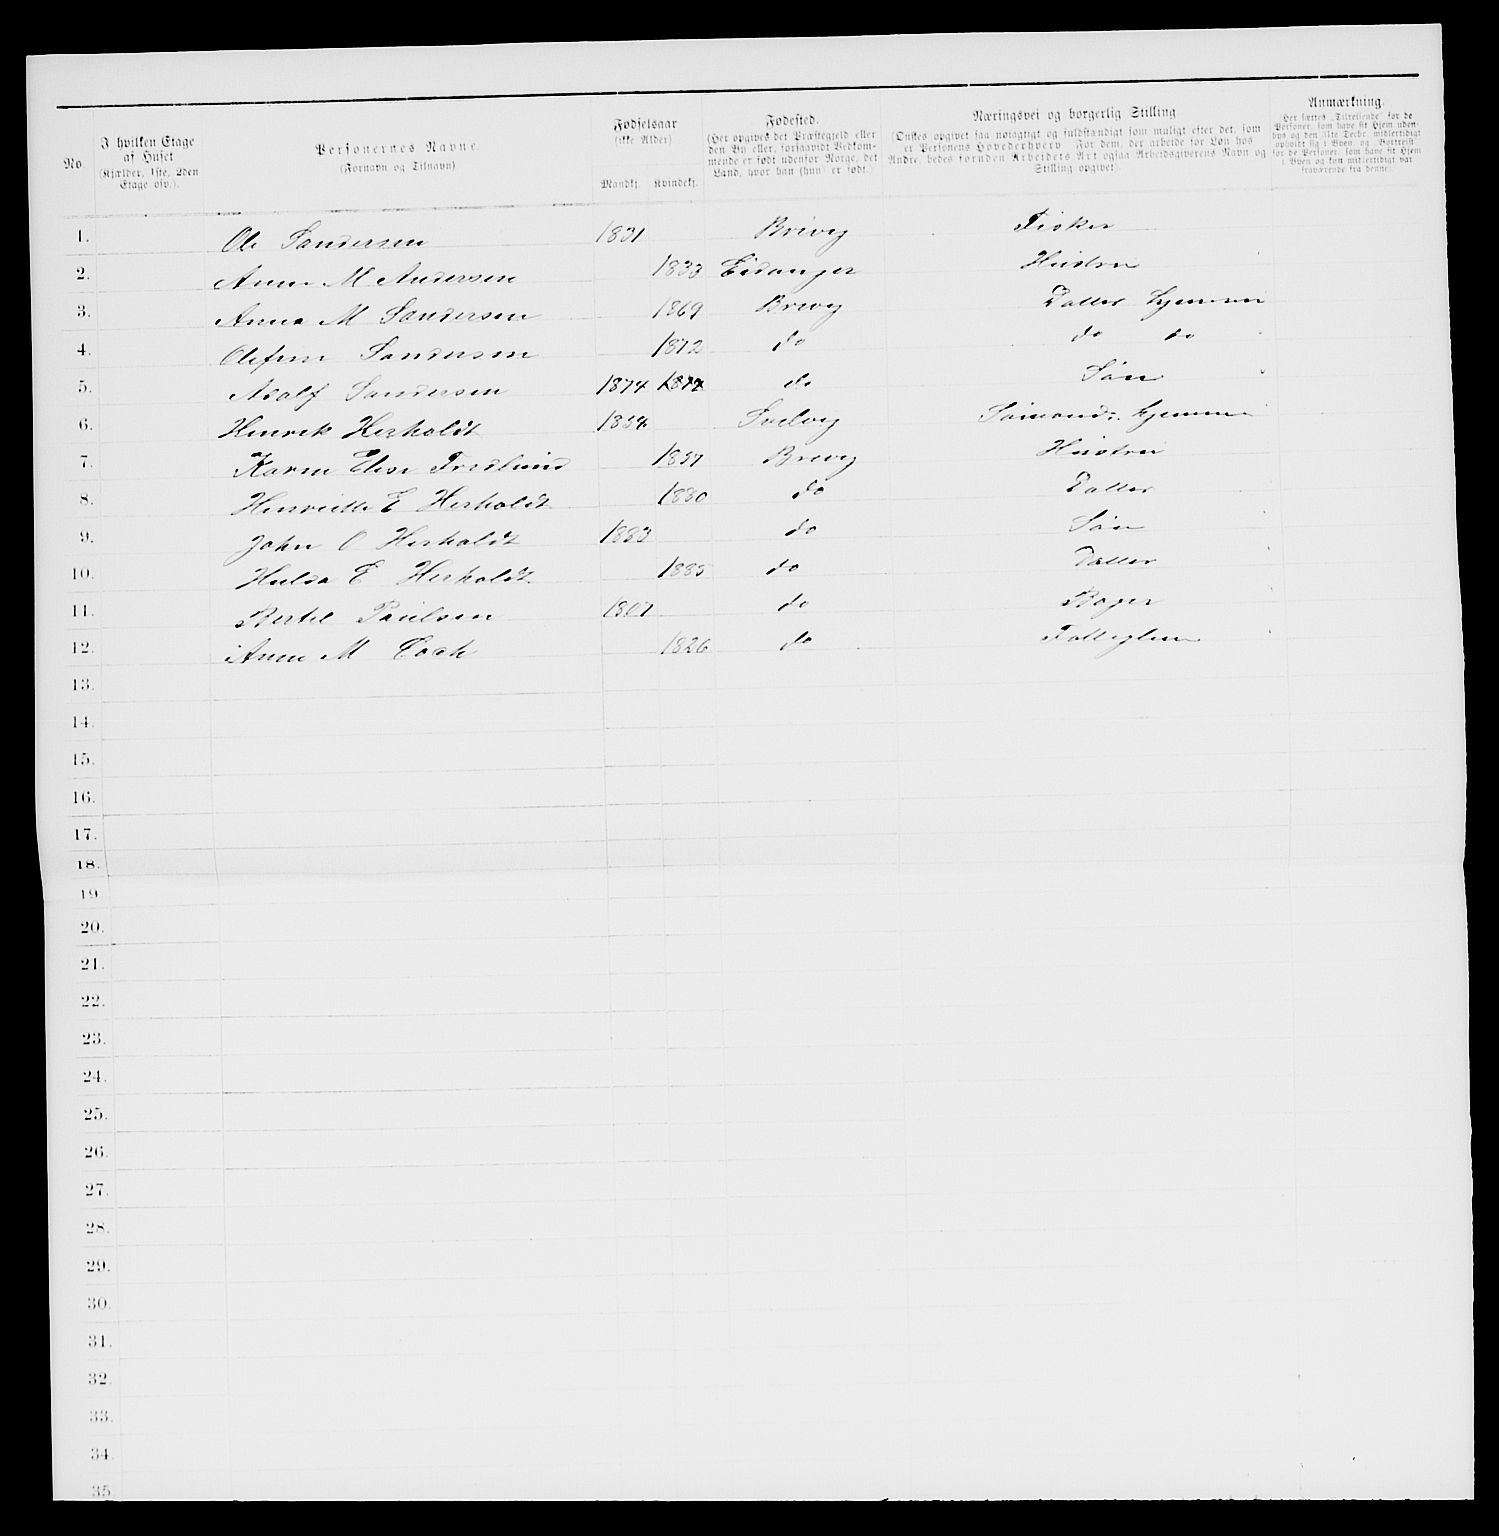 No
I hvilken Etage af Huset (Kjælder, 1ste, 2den Etage osv.).
Personernes Navne. (Fornavn og Tilnavn)
Fødselsaar (ikke Alder) Mandkj. Kvindekj.
Fødested. (Her opgives det Præstegjeld eller den By eller, forsaavidt Vedkommende er født udenfor Norge, det Land, hvor han (hun) er født.)
Næringsvei og borgerlig Stilling (Ønskes opgivet saa nøiagtigt og fuldstændigt som muligt efter det, som er Personens Hovederhverv For dem, der arbeide for Løn hos Andre, bedes foruden Arbeidets Art ogsaa Arbeidsgiverens Navn og Stilling opgivet).
Anmærkning. Her sættes „Tilreisende" for de Personer, som have sit Hjem udenbys og den 31te Decbr. midlertidigt opholdt sig i Byen, og „Bortreist" for de Personer, som have sit Hjem i Byen og kun midlertidigt var fraværende fra denne.
1. Ole Sandersen 1831 Brevig Fisker
2. Anne M Andersen 1833 Eidanger Hustru
3. Anna M Sandersen 1869 Brevig Datter hjemme
4. Olefine Sandersen 1872 do do do
5. Adolf Sandersen 1874 do Søn
6. Henrik Herholdt 1854 Svelvig Sømand hjemme
7. Karen Elise Fredlund 1857 Brevig Hustru
8. Henriette E Herholdt 1880 do Datter
9. John O Herholdt 1883 do Søn
10. Hulda E Herholdt 1885 do Datter
11. Bertel Paulsen 1807 do Bager
12. Anne M Coch 1826 do Fattiglem
13.
14.
15.
16.
17.
18.
19
20.
21.
22.
23.
24.
25.
26.
27.
28.
29.
30.
31.
32.
33.
34.
35.